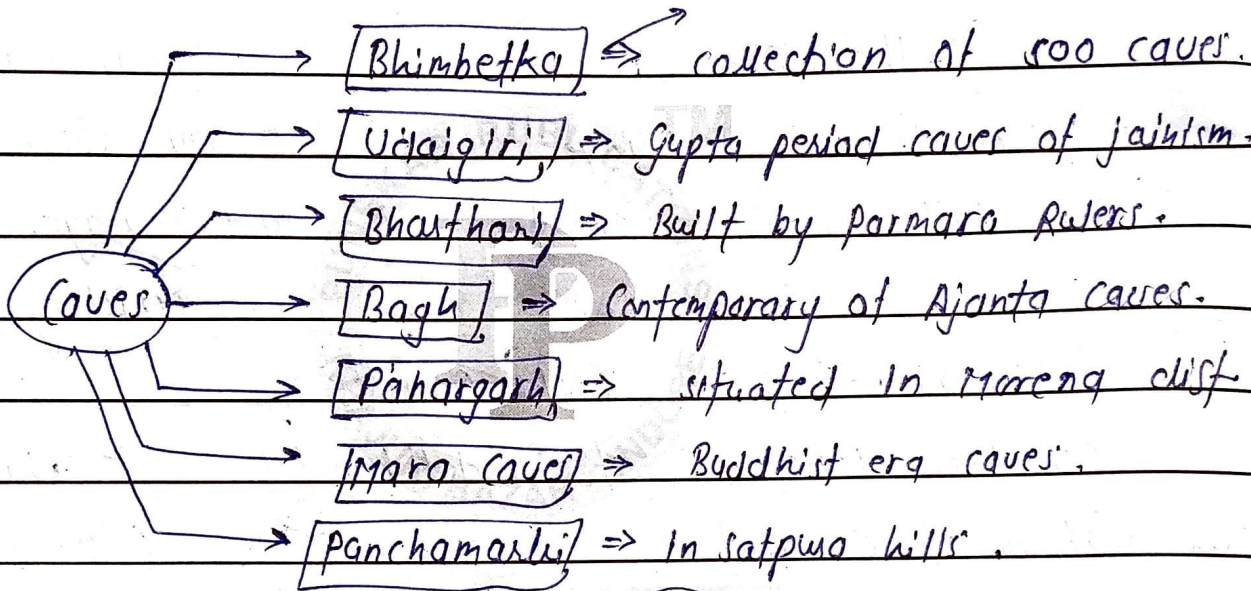 Bhimbetka ⇒ collection of 500 caves.
Udaigiri ⇒ Gupta period caves of jainism.
Bharthari ⇒ Built by Parmara Rulers.
Caves
Bagh ⇒ Contemporary of Ajanta Caves.
Pahargarh ⇒ situated in Morena dist
Mara Caves ⇒ Buddhist era caves.
Panchamarhi ⇒ In satpura hills.